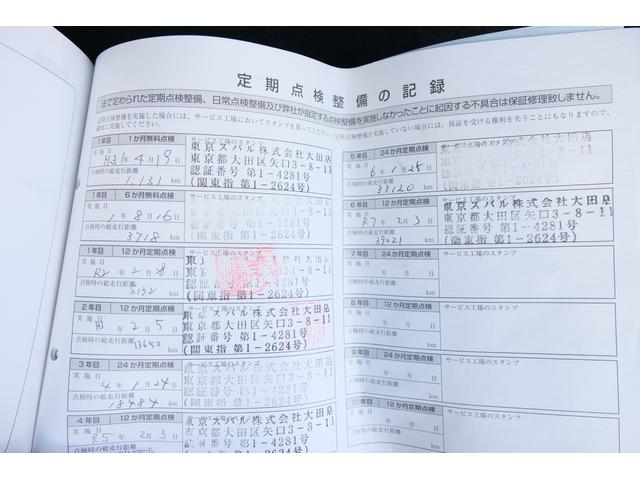 定期点検整備の記録
法で定められた定期点検整備、日常点検整備及び弊社が指定する点検整備を実施しなかったことに起因する不具合は保証修理致しません。
1年目 1か月無料点検
サービス工場のスタンプ
実施日 H31年4月19日
点検時の総走行距離
1,131 km
東京スバル株式会社大田店
東京都大田区矢口3-8-11
認証番号 第1-4281号
(関東指 第1-2624号)
1年目 6か月無料点検
サービス工場のスタンプ
実施日 1年8月16日
点検時の総走行距離
3718 km
東京スバル株式会社大田店
東京都大田区矢口3-8-11
認証番号 第1-4281号
(関東指 第1-2624号)
1年目 12か月定期点検
サービス工場のスタンプ
実施日 R2年2月 日
点検時の総走行距離
5132 km
認証番号 第1-4281号
(関東指 第1-2624号)
2年目 12か月定期点検
サービス工場のスタンプ
実施日 年2月5日
点検時の総走行距離
13650 km
東京スバル株式会社大田店
東京都大田区矢口3-8-11
認証番号 第1-4281号
(関東指 第1-2624号)
3年目 24か月定期点検
サービス工場のスタンプ
実施日 4年1月24日
点検時の総走行距離
18484 km
東京スバル株式会社大田店
東京都大田区矢口3-8-11
認証番号 第1-4281号
(関東指 第1-2624号)
4年目 12か月定期点検
サービス工場のスタンプ
実施日 R5年2月3日
点検時の総走行距離
東京スバル株式会社大田店
東京都大田区矢口3-8-11
認証番号 第1-4281号
(関東指 第1-2624号)
5年目 24か月定期点検
サービス工場のスタンプ
実施日 6年1月25日
点検時の総走行距離
33120 km
東京スバル株式会社大田店
東京都大田区矢口3-8-11
認証番号 第1-4281号
(関東指 第1-2624号)
6年目 12か月定期点検
サービス工場のスタンプ
実施日 R7年2月3日
点検時の総走行距離
39021 km
東京スバル株式会社大田店
東京都大田区矢口3-8-11
認証番号 第1-4281号
(関東指 第1-2624号)
7年目 24か月定期点検
サービス工場のスタンプ
実施日 年 月 日
点検時の総走行距離
km
8年目 12か月定期点検
サービス工場のスタンプ
実施日 年 月 日
点検時の総走行距離
km
9年目 24か月定期点検
サービス工場のスタンプ
実施日 年 月 日
点検時の総走行距離
km
10年目 12か月定期点検
サービス工場のスタンプ
実施日 年 月 日
点検時の総走行距離
km